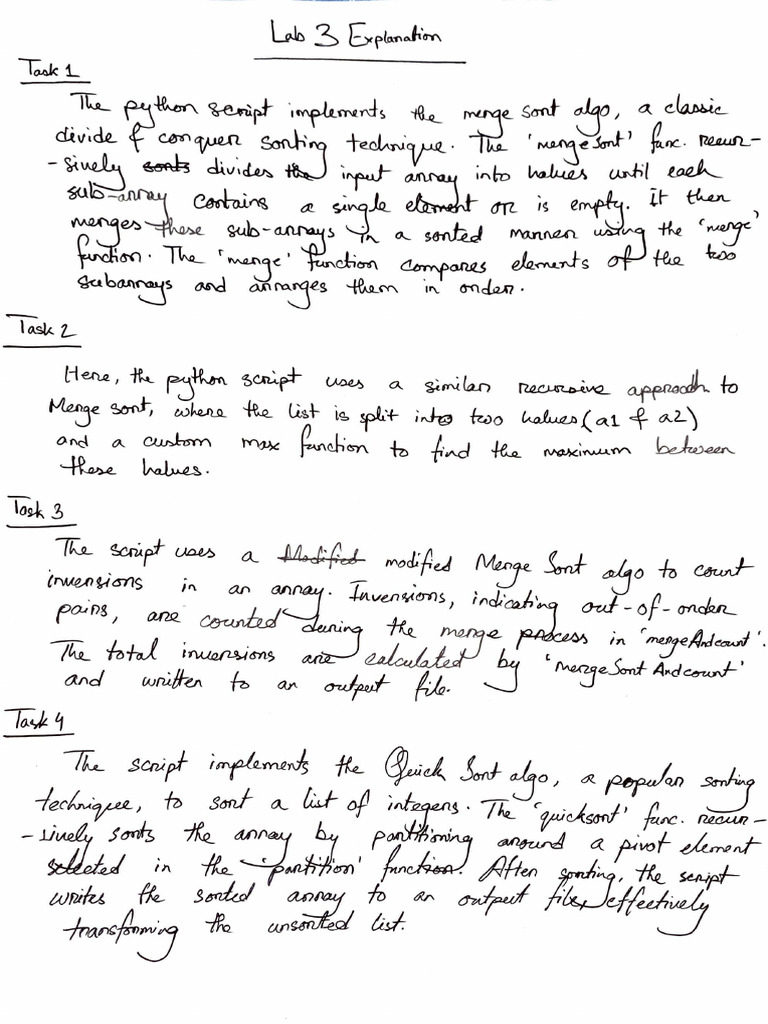 Lab 3 Explanation
Task 1
The python script implements the merge sort algo, a classic
divide & conquer sorting technique. The 'mergeSort' func. recur-
-sively sorts divides the input array into halves until each
sub-array contains a single element or is empty. It then
merges these sub-arrays in a sorted manner using the 'merge'
function. The 'merge' function compares elements of the two
subarrays and arranges them in order.
Task 2
Here, the python script uses a similar recursive approach to
Merge sort, where the list is split into two halves (a1 & a2)
and a custom max function to find the maximum between
these halves.
Task 3
The script uses a Modified modified Merge Sort algo to count
inversions in an array. Inversions, indicating out-of-order
pairs, are counted during the merge process in 'mergeAndcount'.
The total inversions are calculated by 'mergeSortAndcount'
and written to an output file.
Task 4
The script implements the Quick Sort algo, a popular sorting
technique, to sort a list of integers. The 'quicksort' func. recur-
-sively sorts the array by partitioning around a pivot element
selected in the 'partition' function. After sorting, the script
writes the sorted array to an output file, effectively
transforming the unsorted list.